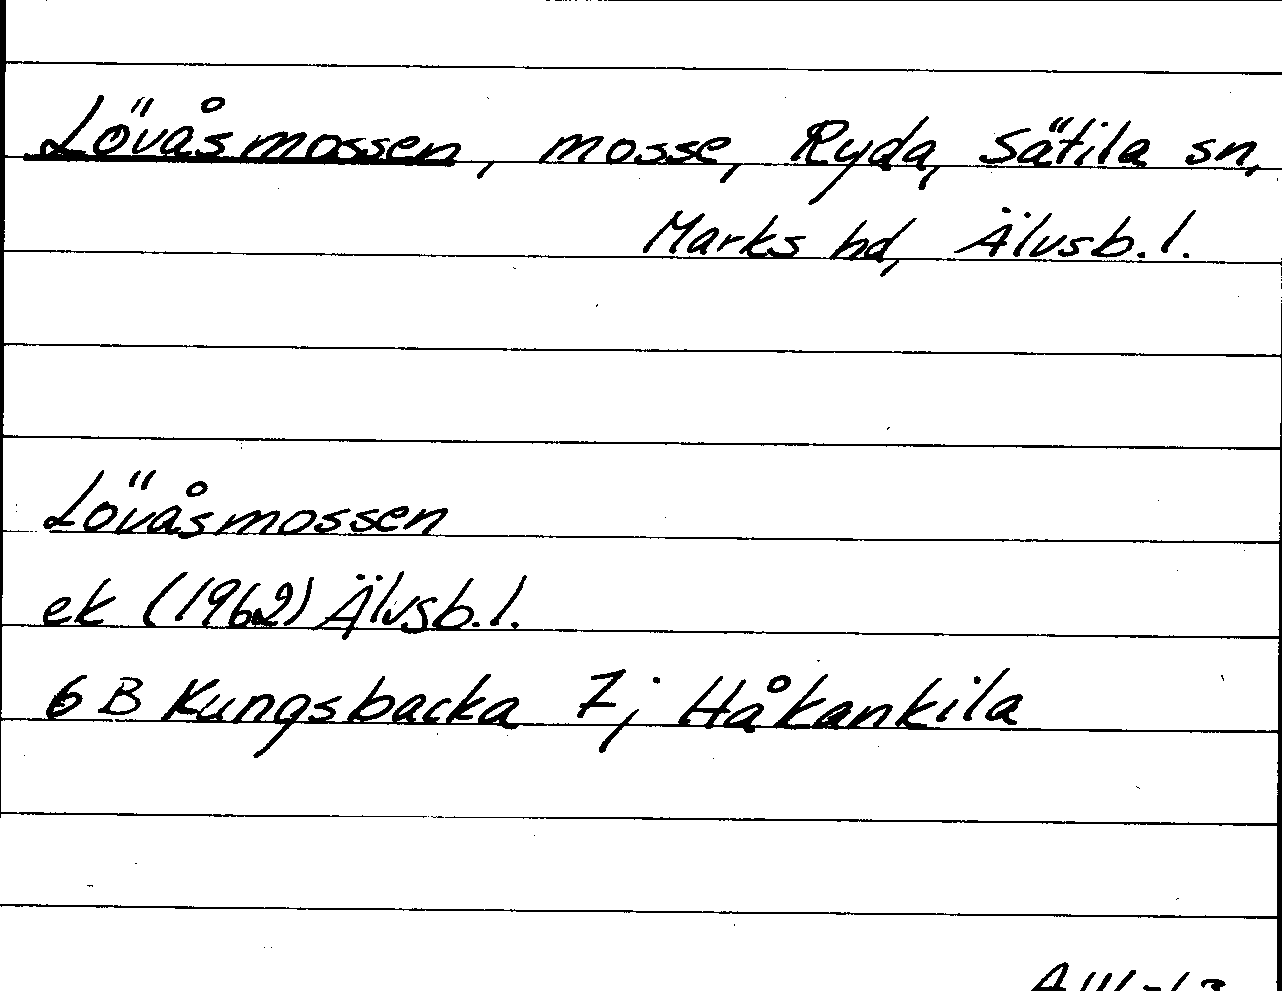 Lövåsmossen, mosse, Ryda, Sätila sn,
Marks hd, Älvsb.l.
Lövåsmossen
ek (1962) Älvsb.l.
6 B Kungsbacka 7j Håkankila